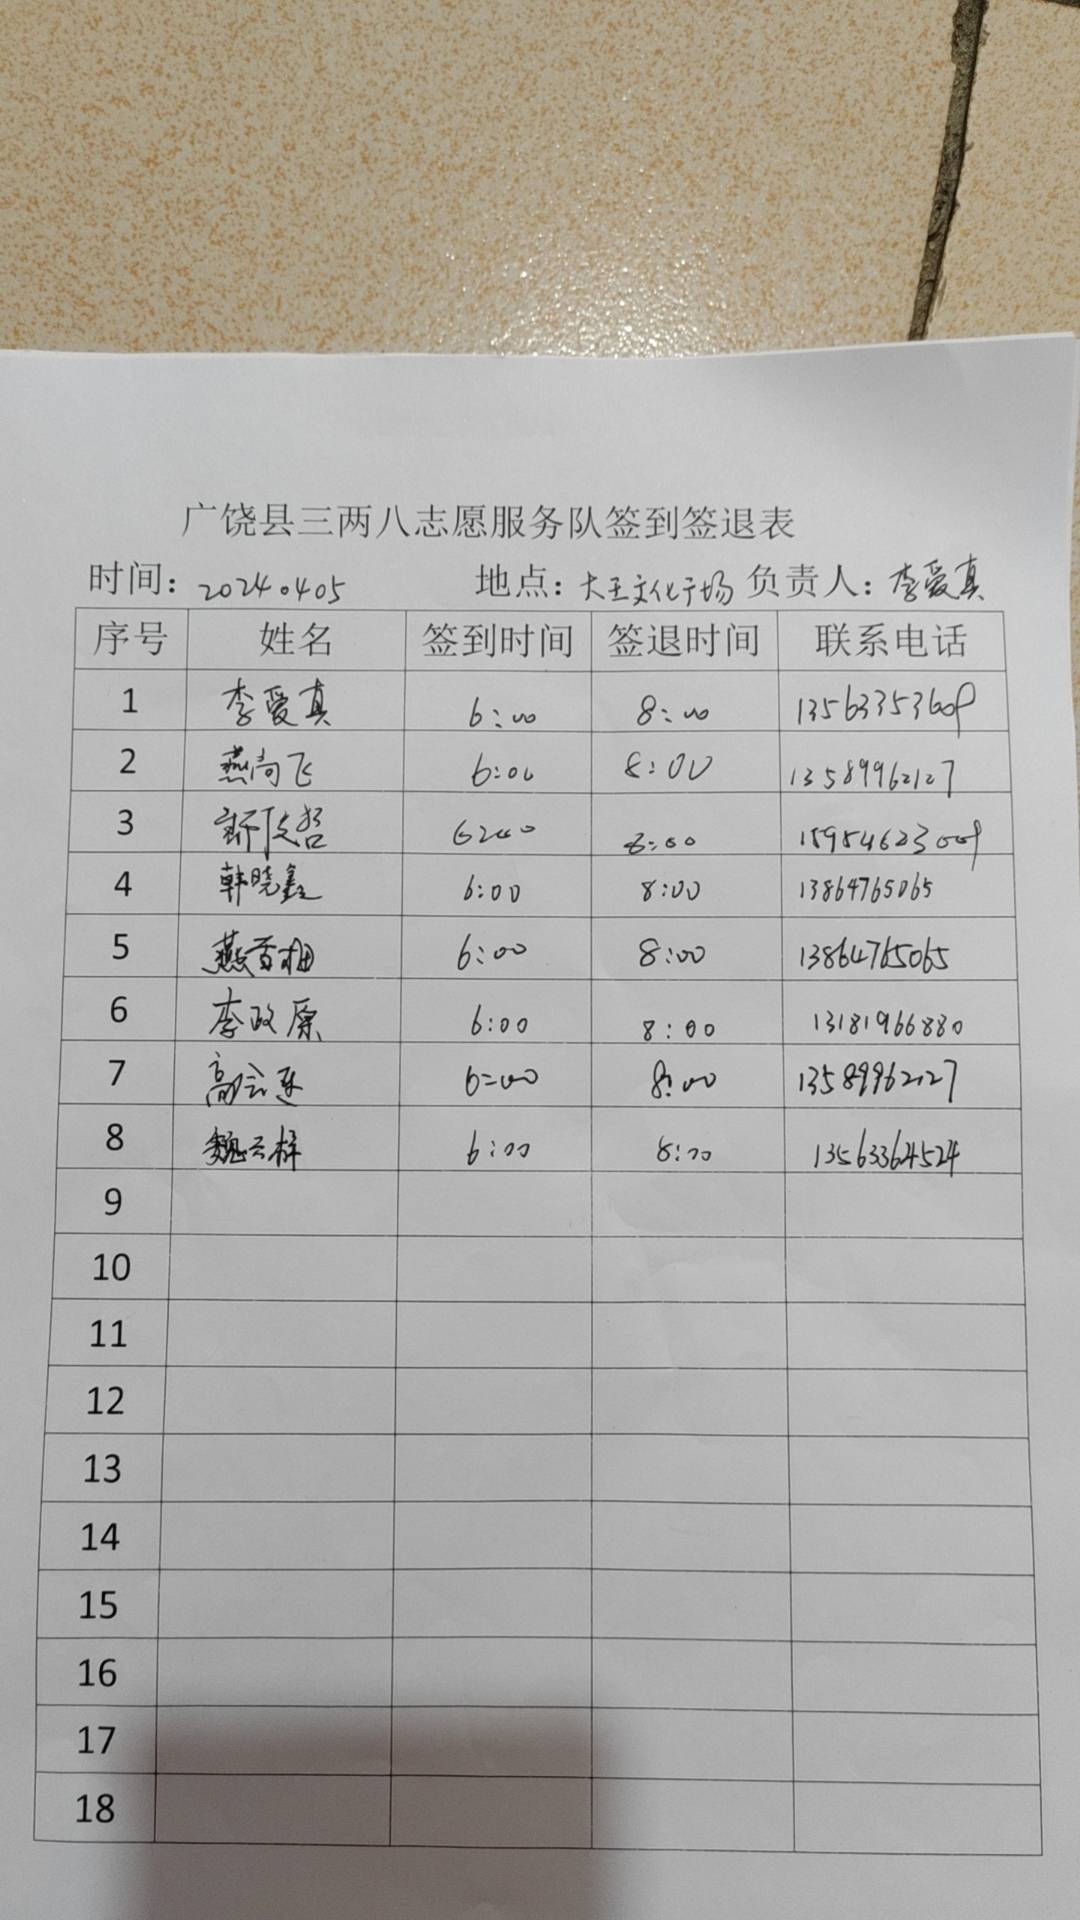 广饶县三两八志愿服务队签到签退表
时间：20240405 地点：大王文化广场 负责人：李爱真
序号 姓名 签到时间 签退时间 联系电话
1 李爱真 6:00 8:00 13563353609
2 燕尚飞 6:00 8:00 13589962127
3 6:00 8:00 15954623009
4 韩晓鑫 6:00 8:00 13864765065
5 燕香 6:00 8:00 13864765065
6 李政原 6:00 8:00 13181966880
7 高会连 6:00 8:00 13589962127
8 魏云祥 6:00 8:00 13563364524
9
10
11
12
13
14
15
16
17
18